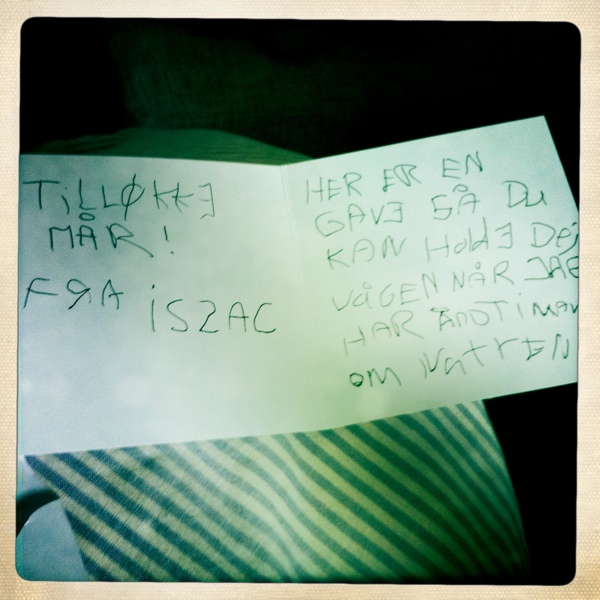 TiLLØKKE
MÅR!
FRA iSZAC
HER ER EN
GAVE SÅ DU
KAN HoldE DEj
VÅGEN NÅR JAE
HAR ÅNDT iMAV
om NatTEN